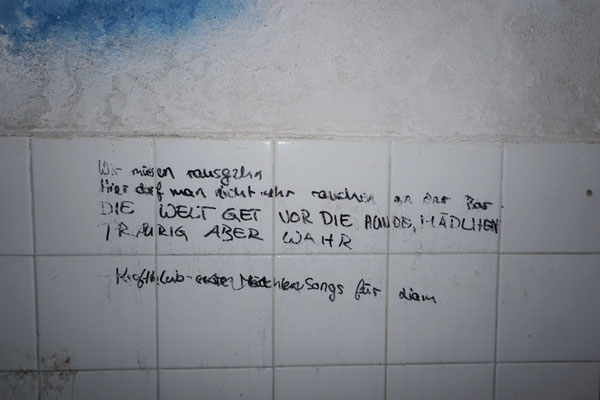 Wir müssen rausgehn
hier darf man nicht mehr rauchen an der Bar
DIE WELT GET VOR DIE HUNDE, MÄDCHEN
TRAURIG ABER WAHR
Kraftklub - Songs für Liam